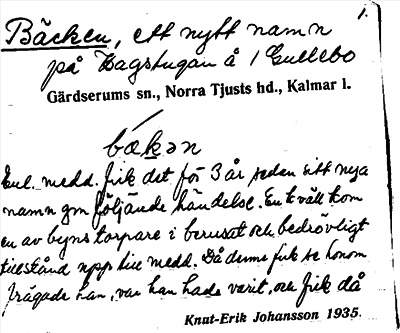 1.
Bäcken, ett nytt namn
på Hagstugan å / Gullebo
Gärdserums sn., Norra Tjusts hd., Kalmar l.
bækən
Enl. medd. fick det för 3 år sedan sitt nya
namn gm följande händelse. En kväll kom
en av byns torpare i berusat och bedrövligt
tillstånd upp till medd. Då denne fick se honom
frågade han, var han hade varit, och fick då
Knut-Erik Johansson 1935.